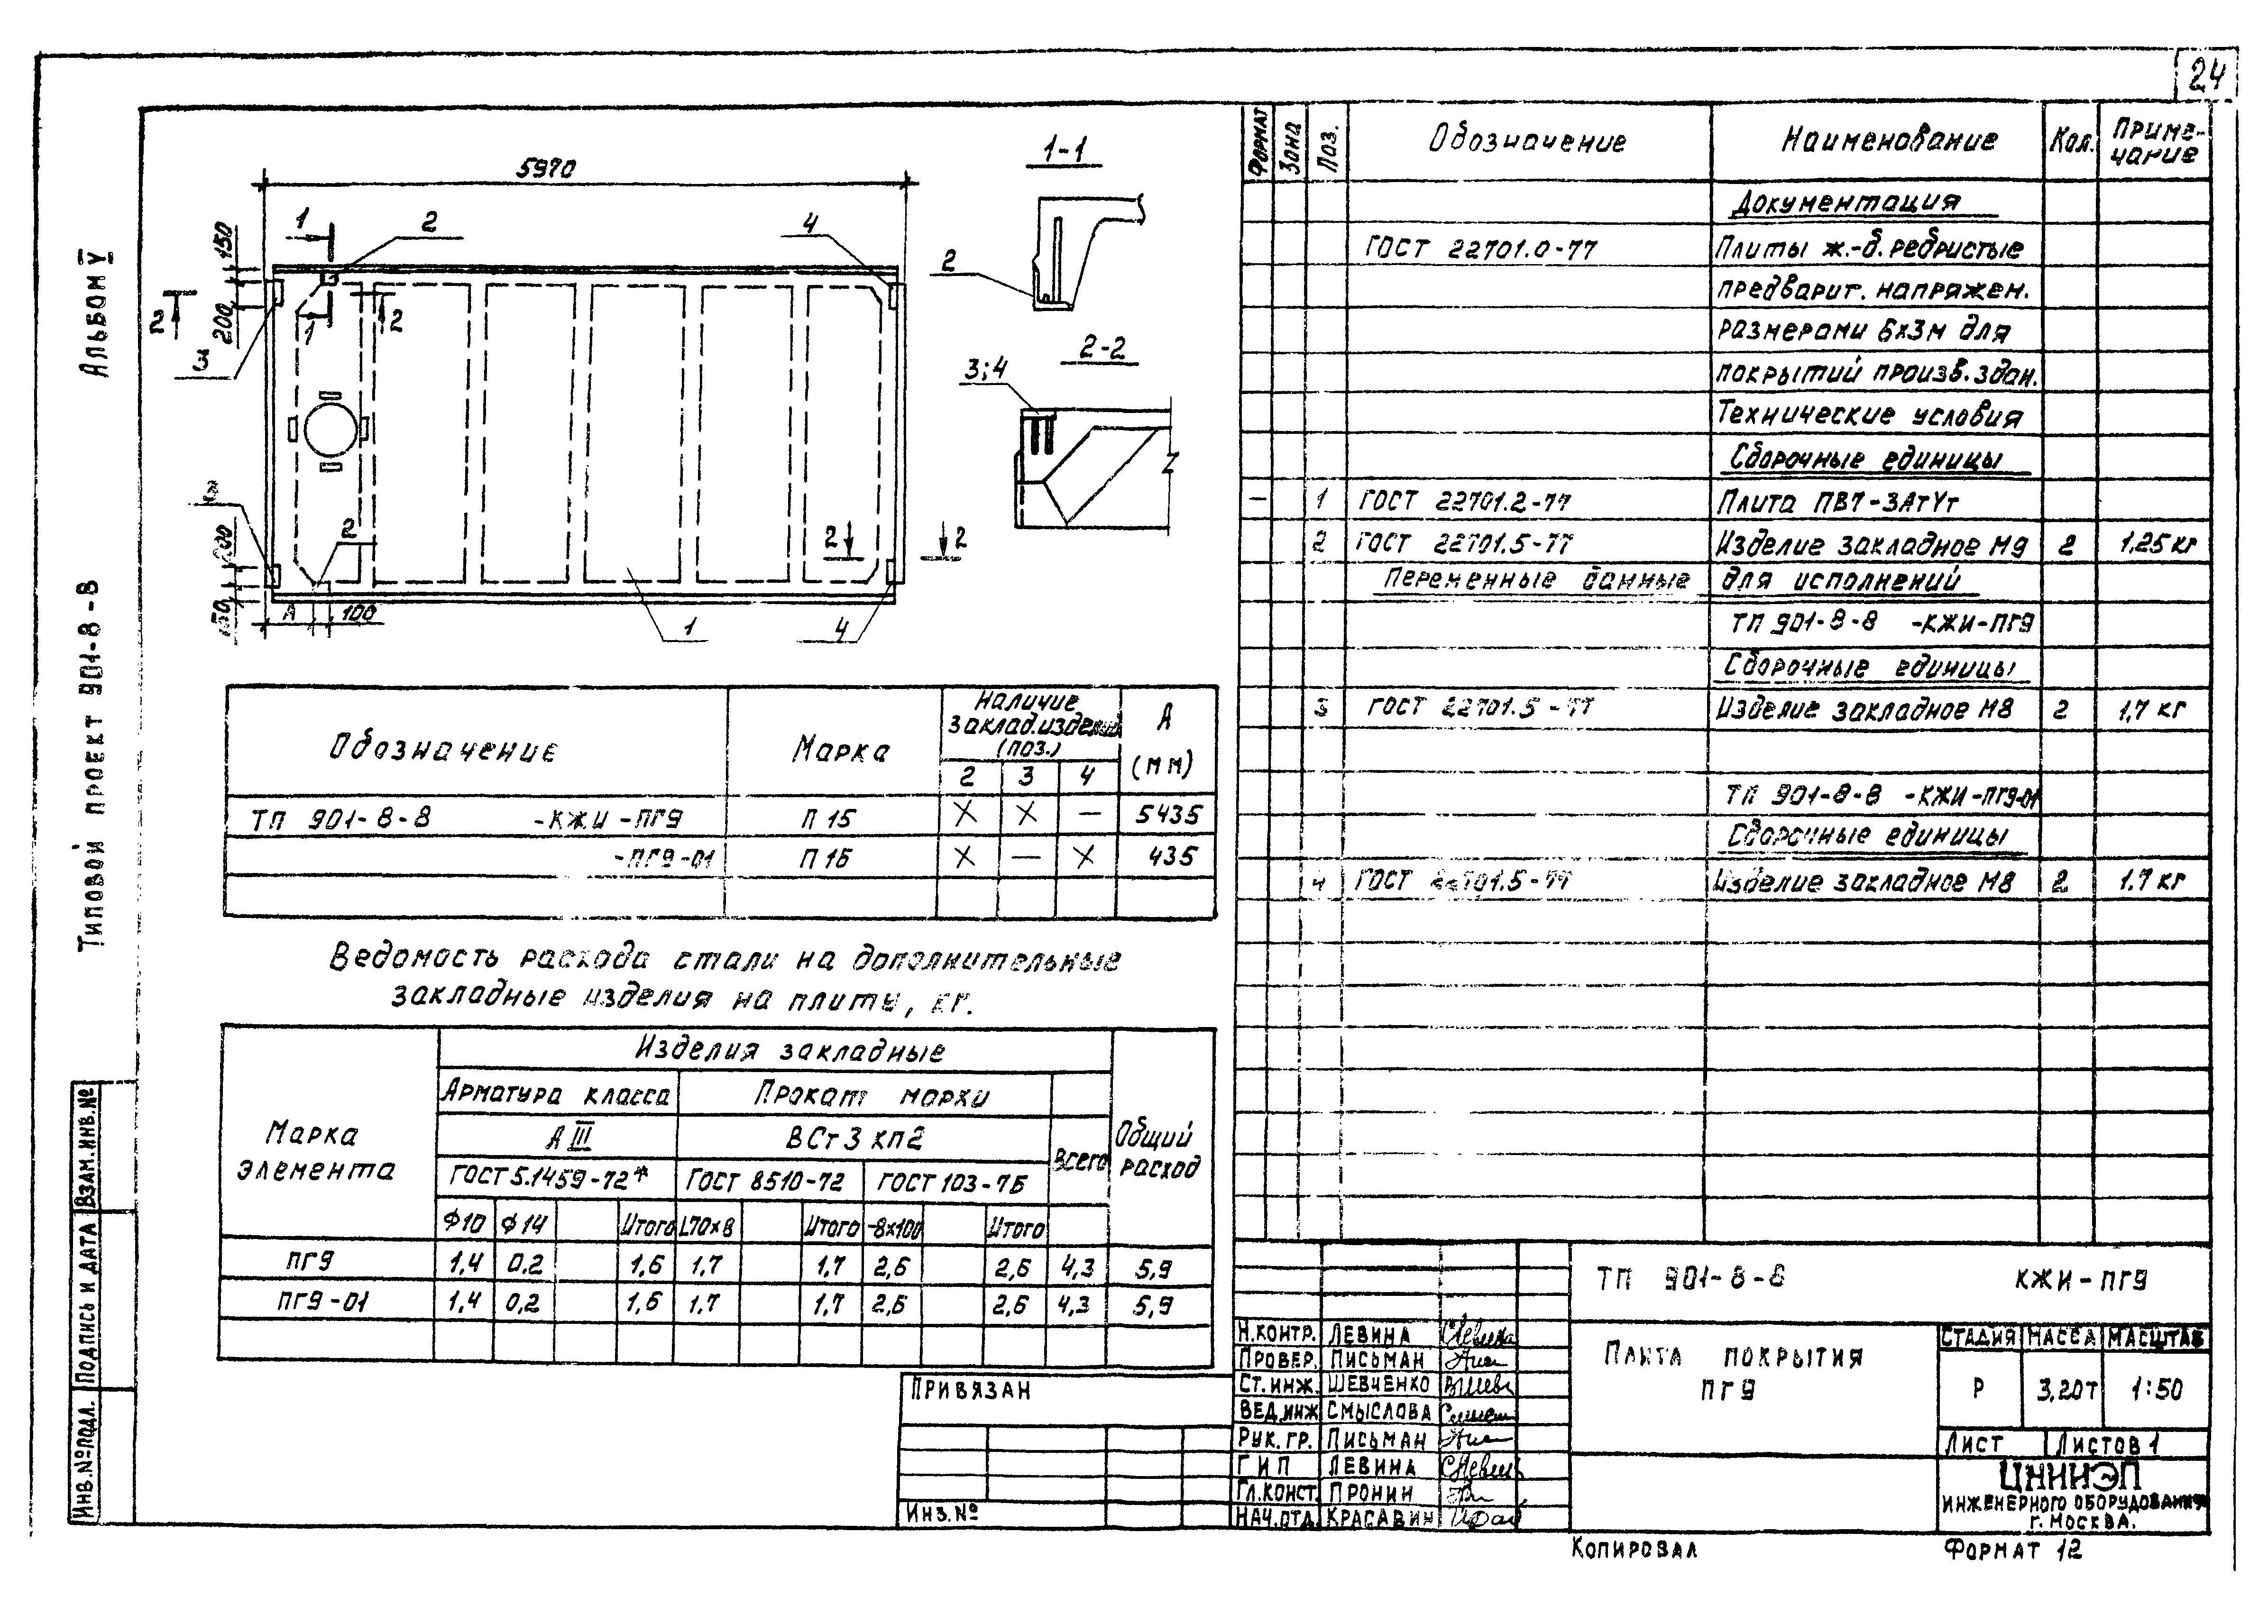 24
Альбом V
Типовой проект 901-8-8
Взам.инв.№
Подпись и дата
Инв.№ подл.
5970
1-1
1
2
4
150
200
2
2
3
1
2
2
3;4
2-2
3
2
2
2
200
150
А
100
1
4
Обозначение
Марка
Наличие заклад.изделий (поз.)
А (мм)
2 3 4
ТП 901-8-8 -КЖИ-ПГ9 П 15 × × — 5435
-ПГ9-01 П 16 × — × 435
Ведомость расхода стали на дополнительные
закладные изделия на плиту, кг.
Марка элемента
Изделия закладные
Общий расход
Арматура класса
Прокат марки
Всего
А III
ВСт 3 кп2
ГОСТ 5.1459-72*
ГОСТ 8510-72
ГОСТ 103-76
Ф10 Ф14 Итого L70×8 Итого -8×100 Итого
ПГ9 1,4 0,2 1,6 1,7 1,7 2,6 2,6 4,3 5,9
ПГ9-01 1,4 0,2 1,6 1,7 1,7 2,6 2,6 4,3 5,9
Формат Зона Поз. Обозначение Наименование Кол. Приме-
чание
Документация
ГОСТ 22701.0-77 Плиты ж.-б. ребристые
предварит. напряжен.
размерами 6х3м для
покрытий произв. здан.
Технические условия
Сборочные единицы
— 1 ГОСТ 22701.2-77 Плита ПВ7-3АтVт
2 ГОСТ 22701.5-77 Изделие закладное М9 2 1,25 кг
Переменные данные для исполнений
ТП 901-8-8 -КЖИ-ПГ9
Сборочные единицы
3 ГОСТ 22701.5-77 Изделие закладное М8 2 1,7 кг
ТП 901-8-8 -КЖИ-ПГ9-01
Сборочные единицы
4 ГОСТ 22701.5-77 Изделие закладное М8 2 1,7 кг
ТП 901-8-8 КЖИ-ПГ9
Н.контр. Левина
Провер. Письман
Ст.инж. Шевченко
Вед.инж Смыслова
Рук.гр. Письман
ГИП Левина
Гл.конст. Пронин
Нач.отд. Красавин
Плита покрытия
ПГ9
Стадия Масса Масштаб
Р 3,20т 1:50
Лист Листов 1
ЦНИИЭП
инженерного оборудования
г. Москва.
Привязан
Инв.№
Копировал
Формат 12